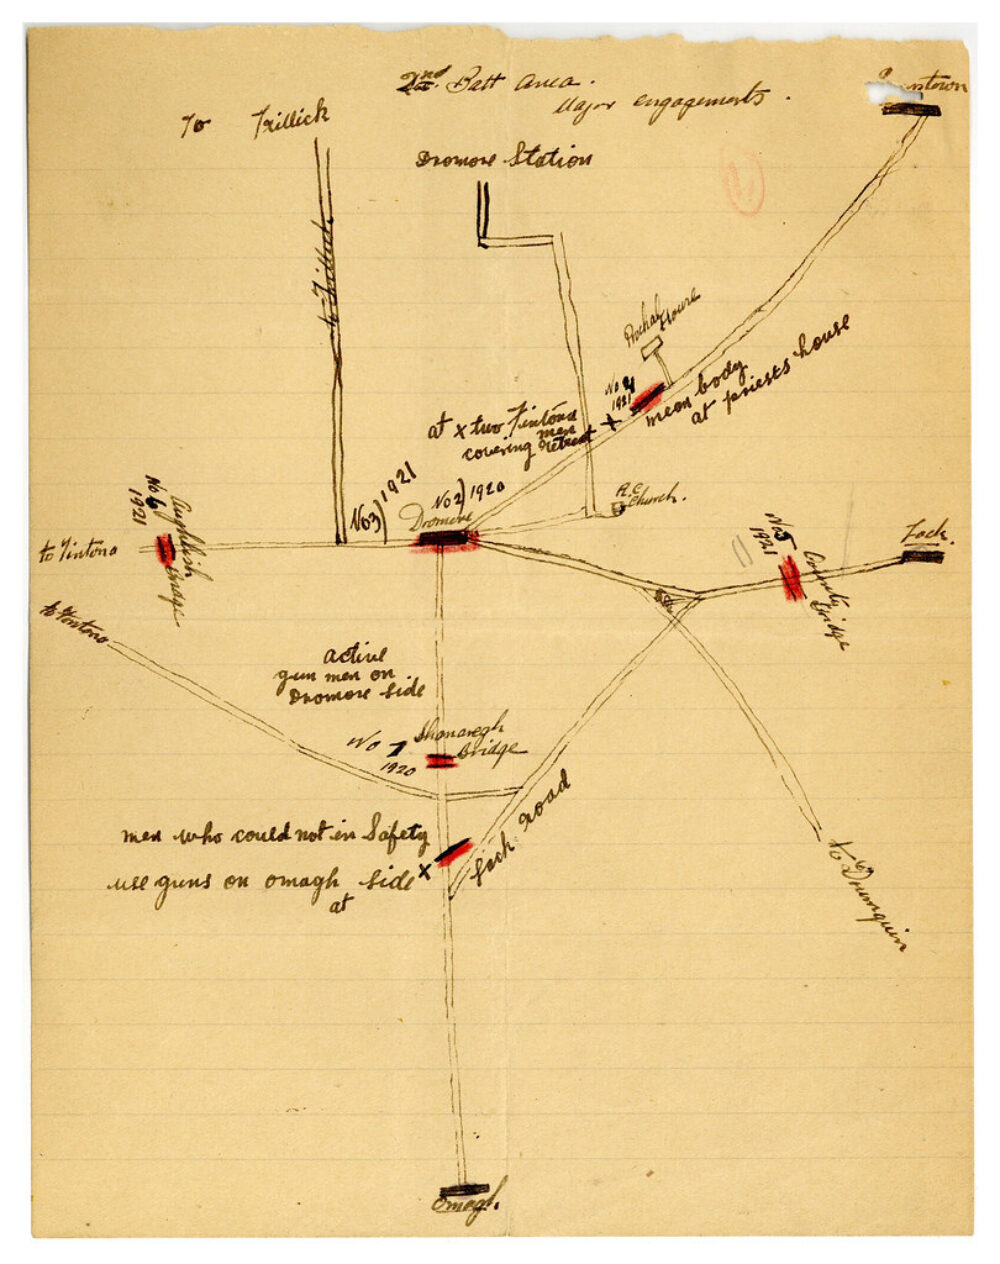 2nd Batt area.
Major engagements.
To Trillick
Dromore Station
to Trillick
House
No 4
1921
mean body
at priests house
at x two Fintona
men
covering retreat
x
No 3) 1921
No 2) 1920
Dromore
R.C.
Church.
No 6
1921
Bridge
to Fintona
No 5
1921
County
Bridge
Lack.
to Fintona
active
gun men on
Dromore side
No 1
1920
Shanaragh
Bridge
men who could not in Safety
use guns on omagh side x
at
Lack road
to Drumquin
Omagh.